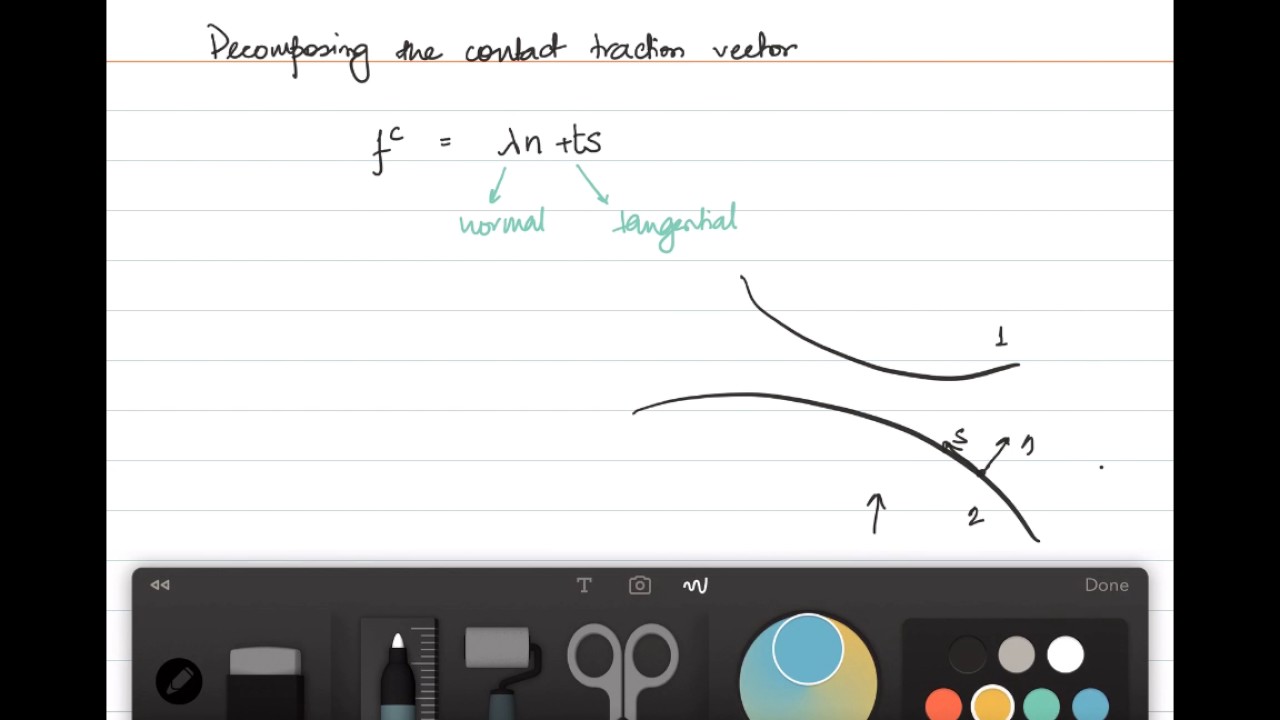 Decomposing the contact traction vector
fᶜ = λn + ts
normal tangential
1
s n
2
T Done